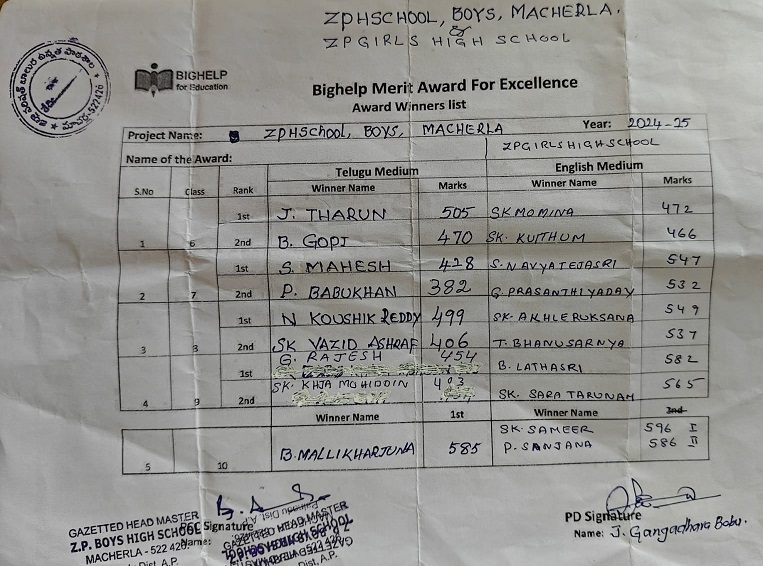 ZPHSCHOOL, BOYS, MACHERLA.
&
ZPGIRLS HIGH SCHOOL
BIGHELP
for Education
Bighelp Merit Award For Excellence
Award Winners list
Project Name: ZPHSchool, BOYS, MACHERLA Year: 2024-25
Name of the Award: ZPGIRLSHIGHSCHOOL
Telugu Medium English Medium
S.No Class Rank Winner Name Marks Winner Name Marks
1st J. THARUN 505 SK MOMINA 472
1 6 2nd B. GOPI 470 SK. KUITHUM 466
1st S. MAHESH 428 S. NAVYATEJASRI 547
2 7 2nd P. BABUKHAN 382 G. PRASANTHI YADAV 532
1st N KOUSHIK REDDY 499 SK. AKHLERUKSANA 549
3 8 2nd SK VAZID ASHRAF 406 T. BHANUSARNYA 537
1st G. RAJESH 454 B. LATHASRI 582
4 9 2nd SK. KHJA MOHIDDIN 403 SK. SARA TARUNAM 565
Winner Name 1st Winner Name 2nd
SK. SAMEER 596 I
5 10 B. MALLIKHARJUNA 585 P. SANJANA 586 II
PSC Signature
Name:
GAZETTED HEAD MASTER
Z.P. BOYS HIGH SCHOOL
MACHERLA - 522 426.
Dist, A.P.
PD Signature
Name: J. Gangadhara Babu.